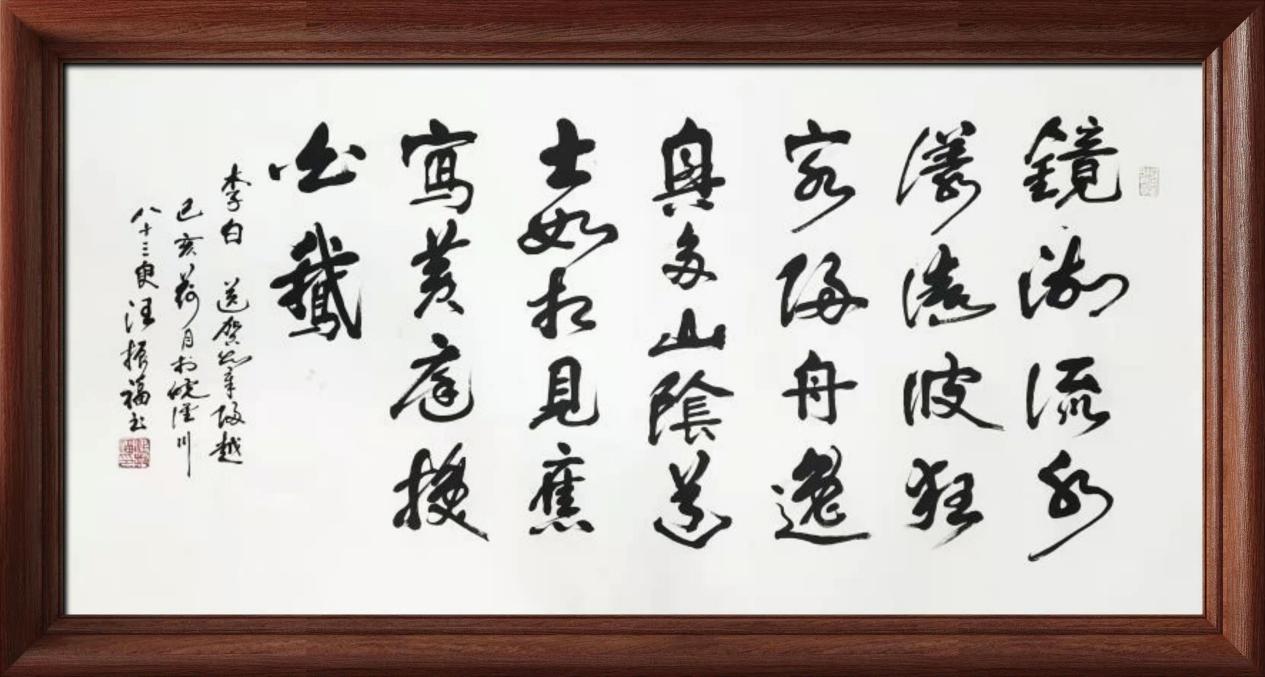 鏡湖流水
漾清波狂
客歸舟逸
興多山陰道
士如相見應
寫黃庭換
白鵝
李白 送賀知章歸越
己亥荷月於皖潛川
八十三叟汪振福書